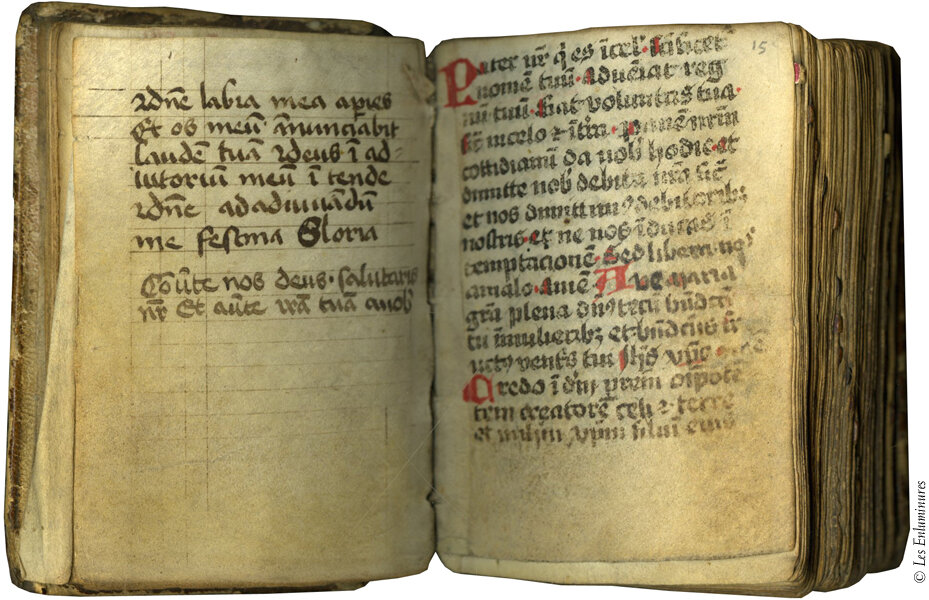 Dn̄e labia mea aꝑies
Et os meū ānunciabit
laudē tuā Deus ī ad-
iutoriū meū ī tende
Dn̄e ad adiuuādū
me festina Gloria
Cōūte nos deus · salutaris
nr̄ Et aūte irā tuā a nob̄
15
Pater nr̄ q̄ es ī cel̄ · sc̄ificet̄
nomē tuū · adueniat reg
nū tuū · fiat voluntas tua ·
in celo ⁊ ī · panē nrm̄
cottidianū da nob̄ hodie · et
dimitte nob̄ debita nr̄a
et nos dimittimꝰ debitorib;
nostris · et ne nos īducas ī
temptacionē · Sed libera nos
a malo · amē · Aue maria
grā plena dn̄s tecū bn̄dc̄ā
tu ī mulierib; et bn̄dc̄us fru
ctꝰ vent̄s tui
Credo ī dm̄ prem̄ om̄ipotē
tem creatorē celi ⁊ terre
et filiū eius
© Les Enluminures